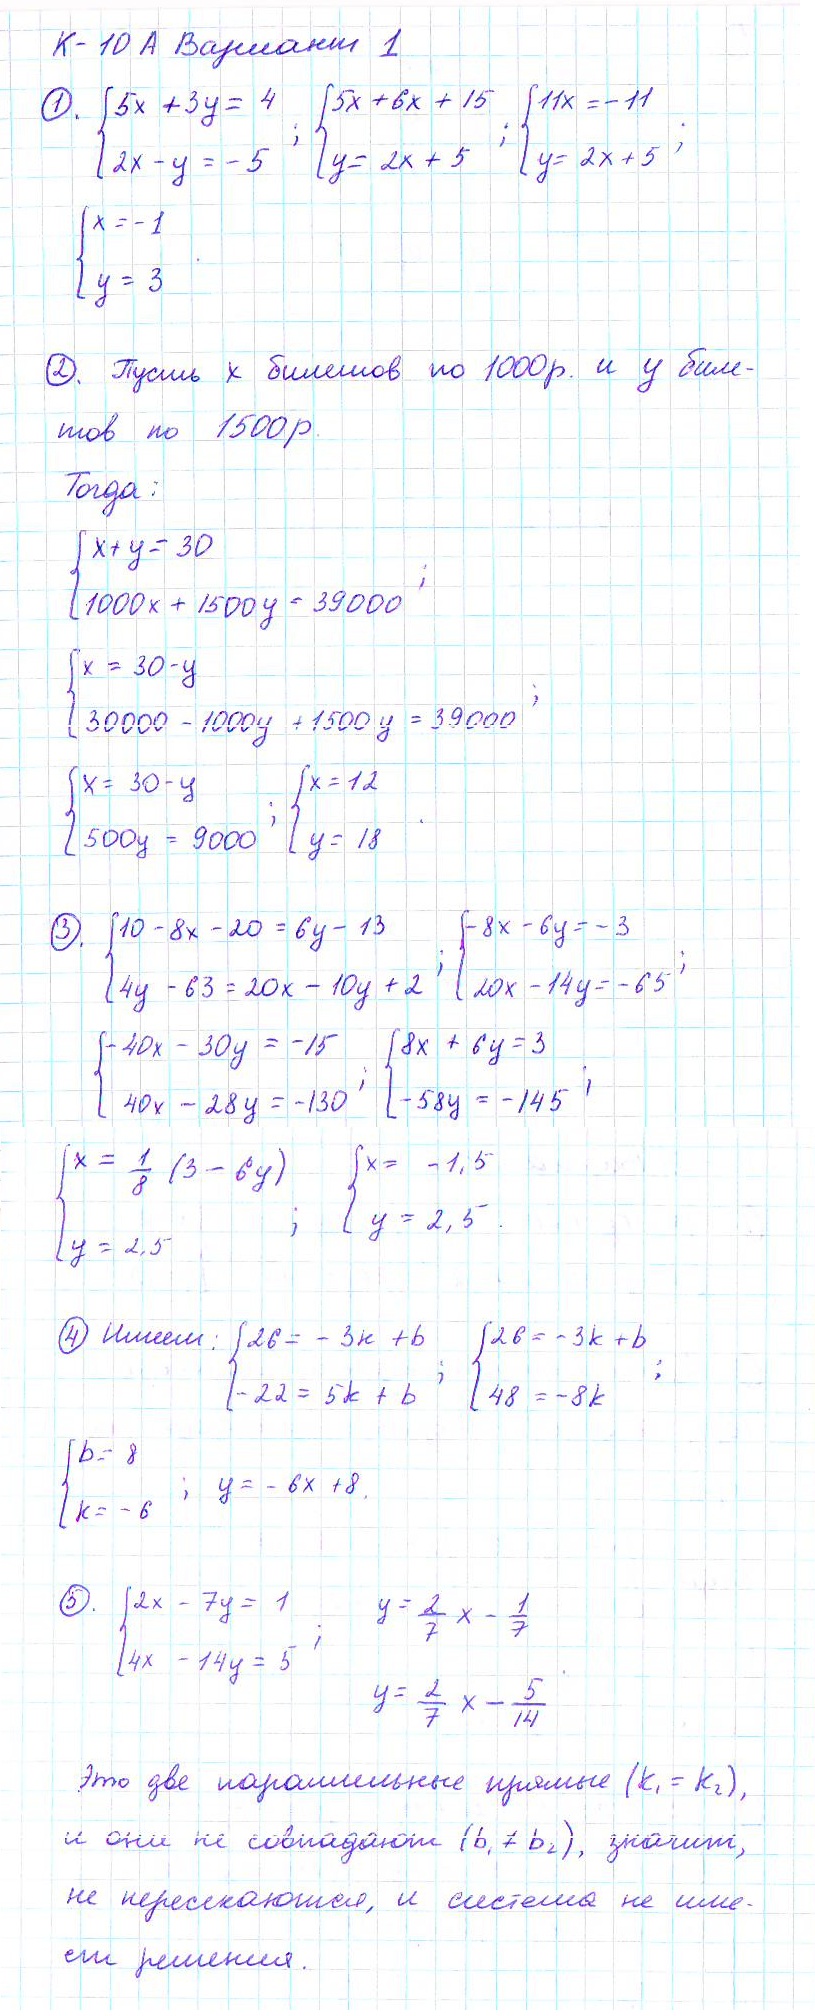 К-10 А Вариант 1
①. {5x + 3y = 4 ; {5x + 6x + 15 ; {11x = -11 ;
{2x - y = -5 {y = 2x + 5 {y = 2x + 5
{x = -1
{y = 3 .
②. Пусть x билетов по 1000р. и y биле-
тов по 1500р.
Тогда:
{x + y = 30
{1000x + 1500y = 39000 ;
{x = 30 - y
{30000 - 1000y + 1500y = 39000 ;
{x = 30 - y ; {x = 12
{500y = 9000 {y = 18 .
③. {10 - 8x - 20 = 6y - 13 ; {-8x - 6y = -3 ;
{4y - 63 = 20x - 10y + 2 {20x - 14y = -65
{-40x - 30y = -15 ; {8x + 6y = 3 ;
{40x - 28y = -130 {-58y = -145
{x = 1/8 (3 - 6y) {x = -1,5
{y = 2,5 ; {y = 2,5 .
④ Имеем: {26 = -3k + b ; {26 = -3k + b ;
{-22 = 5k + b {48 = -8k
{b = 8
{k = -6 ; y = -6x + 8.
⑤. {2x - 7y = 1 ; y = 2/7 x - 1/7
{4x - 14y = 5 y = 2/7 x - 5/14 .
Это две параллельные прямые (k₁ = k₂),
и они не совпадают (b₁ ≠ b₂), значит,
не пересекаются, и система не име-
ет решения.